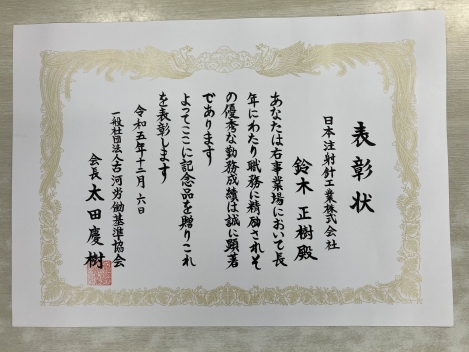 表彰状
日本注射針工業株式会社
鈴木 正樹殿
あなたは右事業場において長
年にわたり職務に精励されそ
の優秀な勤務成績は誠に顕著
であります
よってここに記念品を贈りこれ
を表彰します
令和五年十二月六日
一般社団法人古河労働基準協会
会長 太田慶樹